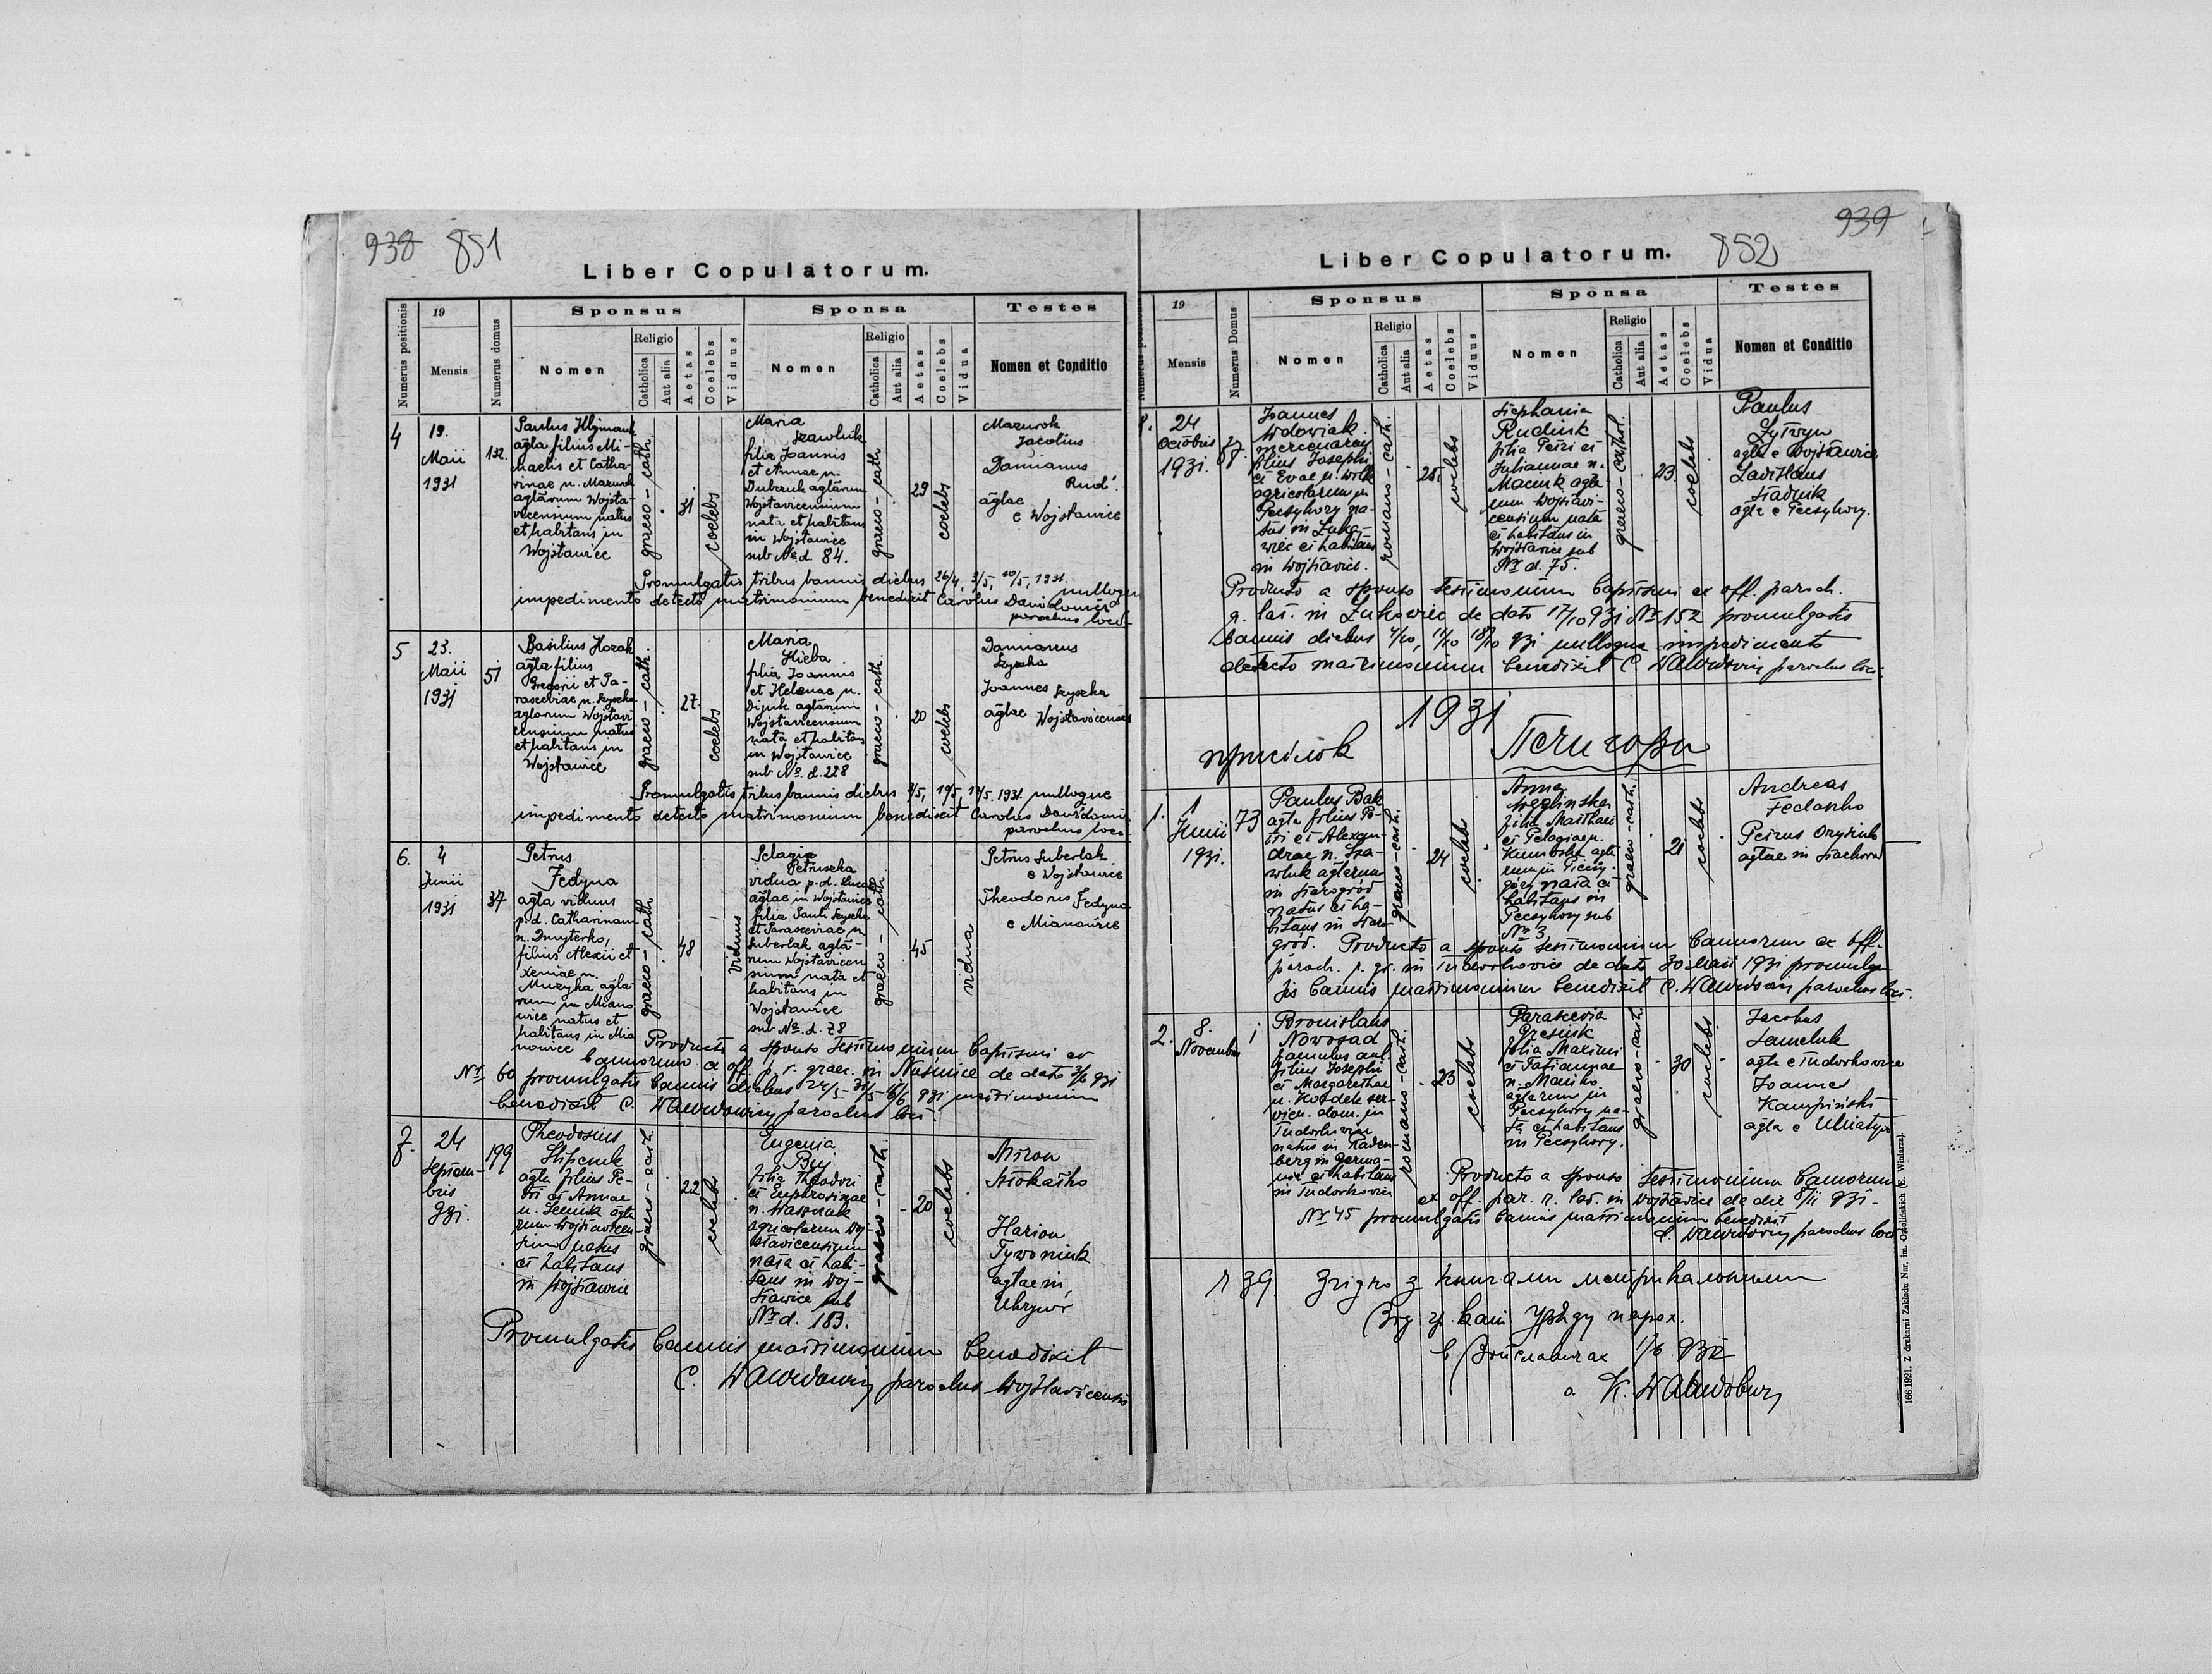 938 851
Liber Copulatorum.
Numerus positionis
19
Mensis
Numerus domus
Sponsus
Nomen
Religio
Catholica
Aut alia
Aetas
Coelebs
Viduus
Sponsa
Nomen
Religio
Catholica
Aut alia
Aetas
Coelebs
Vidua
Testes
Nomen et Conditio
4
19.
Maii
1931
132.
Paulus
agla filius Mi-
chaelis et Catha-
rinae n. Mazurok
aglarum Wojsła-
vicensium natus
et habitans in
Wojsławice
graeco-cath.
31
coelebs
Maria
Szawluk
filia Joannis
et Annae n.
Dubczuk aglarum
Wojsławicensium
nata et habitans
in Wojsławice
sub No. d. 84.
graeco-cath.
29
coelebs
Mazurok
Jacobus
Damianus
Rud'
aglae
e Wojsławice
Promulgatis tribus bannis diebus 26/4, 3/5, 10/5, 1931. nulloque
impedimento detecto matrimonium benedixit Carolus
parochus loci.
5
23.
Maii
1931
51
Basilius Hozak
agla filius
Gregorii et Pa-
rasceviae n. Szyszka
aglarum Wojsławi-
censium natus
et habitans in
Wojsławice
graeco-cath.
27
coelebs
Maria
Hleba
filia Joannis
et Helenae n.
Dijuk aglarum
Wojsławicensium
nata et habitans
in Wojsławice
sub No. d. 228
graeco-cath.
20
coelebs
Damianus
Szyszka
Joannes Szyszka
aglae Wojsławicenses
Promulgatis tribus bannis diebus 3/5, 10/5, 17/5. 1931. nulloque
impedimento detecto matrimonium benedixit Carolus
parochus loci
6.
4
Junii
1931
37
Petrus
Fedyna
agla viduus
p. d. Catharinam
n. Dmyterko,
filius Alexii et
Xeniae n.
Muzyka agla-
rum in Miano-
wice natus et
habitans in Mia-
nowice
graeco-cath
48
viduus
Pelagia
Petruszka
vidua p. d. Lucae
aglae in Wojsławice
filia Pauli Szyszka
et Parasceviae n.
Suberlak agla-
rum Wojsławicen-
sium nata et
habitans in
Wojsławice
sub No. d. 78
graeco-cath.
45
vidua
Petrus Suberlak
e Wojsławice
Theodorus Fedyna
e Mianowice
Producto a sponso Testimonium baptismi ac
bannorum ex off. p. r. graec. in de dato 3/6 931
No 60 promulgatis bannis diebus 24/5 - 31/5 - 931 matrimonium
benedixit C. parochus loci.
7.
24
Septem-
bris
931.
199
Theodosius
agla filius Pe-
tri et Annae
n. Semiuk agla-
rum Wojsławicen-
sium natus
et habitans
in Wojsławice
graeco-cath.
22
coelebs
Eugenia
filia Theodori
et Euphrosinae
n.
agricolarum Woj-
sławicensium
nata et habi-
tans in Woj-
sławice sub
No d. 183.
graeco-cath.
20
coelebs
Miron
Harion
Tywoniuk
aglae in
Uhrynów
Promulgatis bannis matrimonium benedixit
C. parochus Wojsławicensis
939
Liber Copulatorum. 852
19
Mensis
Numerus Domus
Sponsus
Nomen
Religio
Catholica
Aut alia
Aetas
Coelebs
Viduus
Sponsa
Nomen
Religio
Catholica
Aut alia
Aetas
Coelebs
Vidua
Testes
Nomen et Conditio
8.
24
Octobris
1931.
Joannes
Wdowiak
mercenarius
filius Josephi
et Evae n. Wilk
agricolarum in
Peczyhory na-
tus in Łuka-
wiec et habitans
in Wojsławice.
romano-cath.
25.
coelebs
Stephania
Rudiuk
filia Petri et
Julianae n.
Maciuk agla-
rum Wojsławi-
censium nata
et habitans in
Wojsławice sub
No d. 75.
graeco-cathol.
23
coelebs
Paulus
Łytwyn
agla e Wojsławice
Ladislaus
Stadnik
agla e Peczyhory.
Producto a sponso testimonium baptismi ex off. paroch.
r. lat. in Łukawiec de dato 17/10 931 No 152 promulgatis
bannis diebus 4/10, 11/10 18/10 931 nulloque impedimento
detecto matrimonium benedixit C. parochus loci.
1931
присілок Печигори
1.
1
Junii
1931.
73
Paulus Bak
agla filius Pe-
tri et Alexan-
drae n. Sza-
wluk aglarum
in Starogród
natus et ha-
bitans in Staro-
gród.
graeco-cath.
24
coelebs
Anna
filia Matthaei
et Pelagiae n.
agla-
rum in Pieczy-
góry nata et
habitans in
Peczyhory sub
No 3
graeco-cath.
21
coelebs
Andreas
Fedaszko
Petrus
aglae in
Producto a sponso testimonium bannorum ex off.
paroch. r. gr. in Tudorkowice de dato 30 Maii 1931 promulga-
tis bannis matrimonium benedixit C. parochus loci.
2.
8.
Novembris
1
Bronislaus
Nowosad
famulus aul.
filius Josephi
et Margarethae
n. Kozdek ser-
vien. dom. in
Tudorkowice
natus in Raden-
berg in Germa-
nia et habitans
in Tudorkowice
romano-cath.
23
coelebs
Parascevia
filia Maximi
et Tatiannae
n. Maziko
aglarum in
Peczyhory na-
ta et habitans
in Peczyhory.
graeco-cath.
30
coelebs
Jacobus
agla e Tudorkowice
Joannes
Kampiński
agla e Ulhatyn
Producto a sponso testimonium bannorum
ex off. par. r. lat. in Wojsławice de die 8/11 931 -
No 45 promulgatis bannis matrimonium benedixit
C. parochus loci
Ч 39. Згідно з книгами метрикальними
Від гр. кат. Уряду парох.
в Войславичах 1/6 932
о. К.
166 1921. Z drukarni Zakładu Nar. im. Ossolińskich (E. Winiarza).